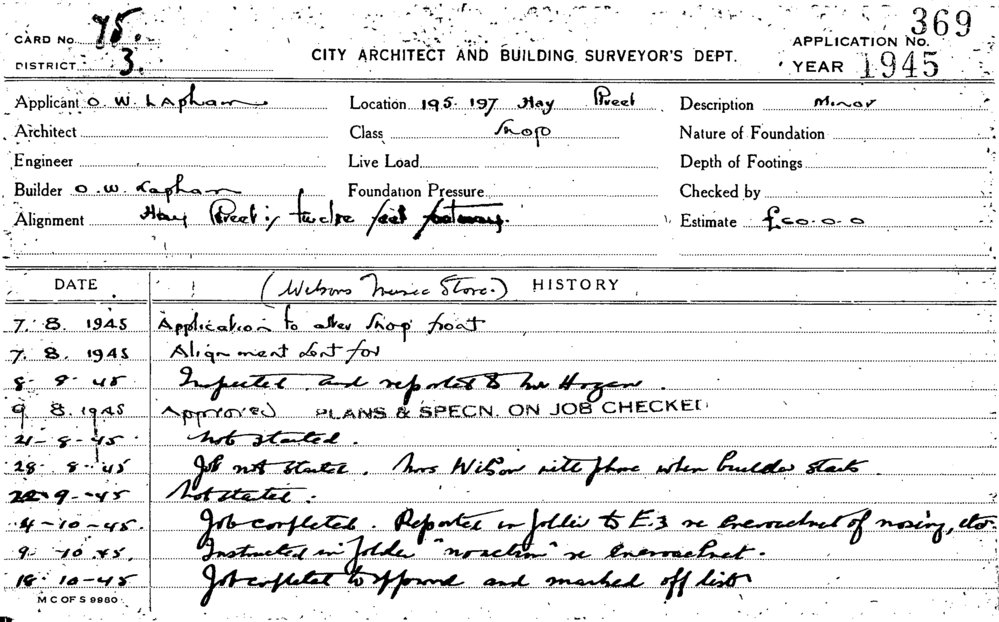 CARD No. 75.
DISTRICT 3.
CITY ARCHITECT AND BUILDING SURVEYOR'S DEPT.
APPLICATION No. 369
YEAR 1945
Applicant O. W. Lapham Location 195. 197 Hay Street Description Minor
Architect Class Shop Nature of Foundation
Engineer Live Load Depth of Footings
Builder O. W. Lapham Foundation Pressure Checked by
Alignment Hay Street is twelve feet footway. Estimate £60.0.0
DATE (Wilsons Music Store.) HISTORY
7. 8. 1945 Application to alter Shop front
7. 8. 1945 Alignment sent for
8. 8. 45 Inspected and reported to Mr Hogan.
9 8. 1945 Approved PLANS & SPECN. ON JOB CHECKED
21-8-45 Not started.
28. 8. 45 Job not started. Mrs Wilson will phone when builder starts.
9-45 Not started.
4-10-45. Job completed. Reported in folder to E.3 re encroachment of nosing, etc.
9. 10 45. Instructed in folder "no action" re encroachment.
18. 10-45 Job complete to approval and marked off list
M C OF S 9980